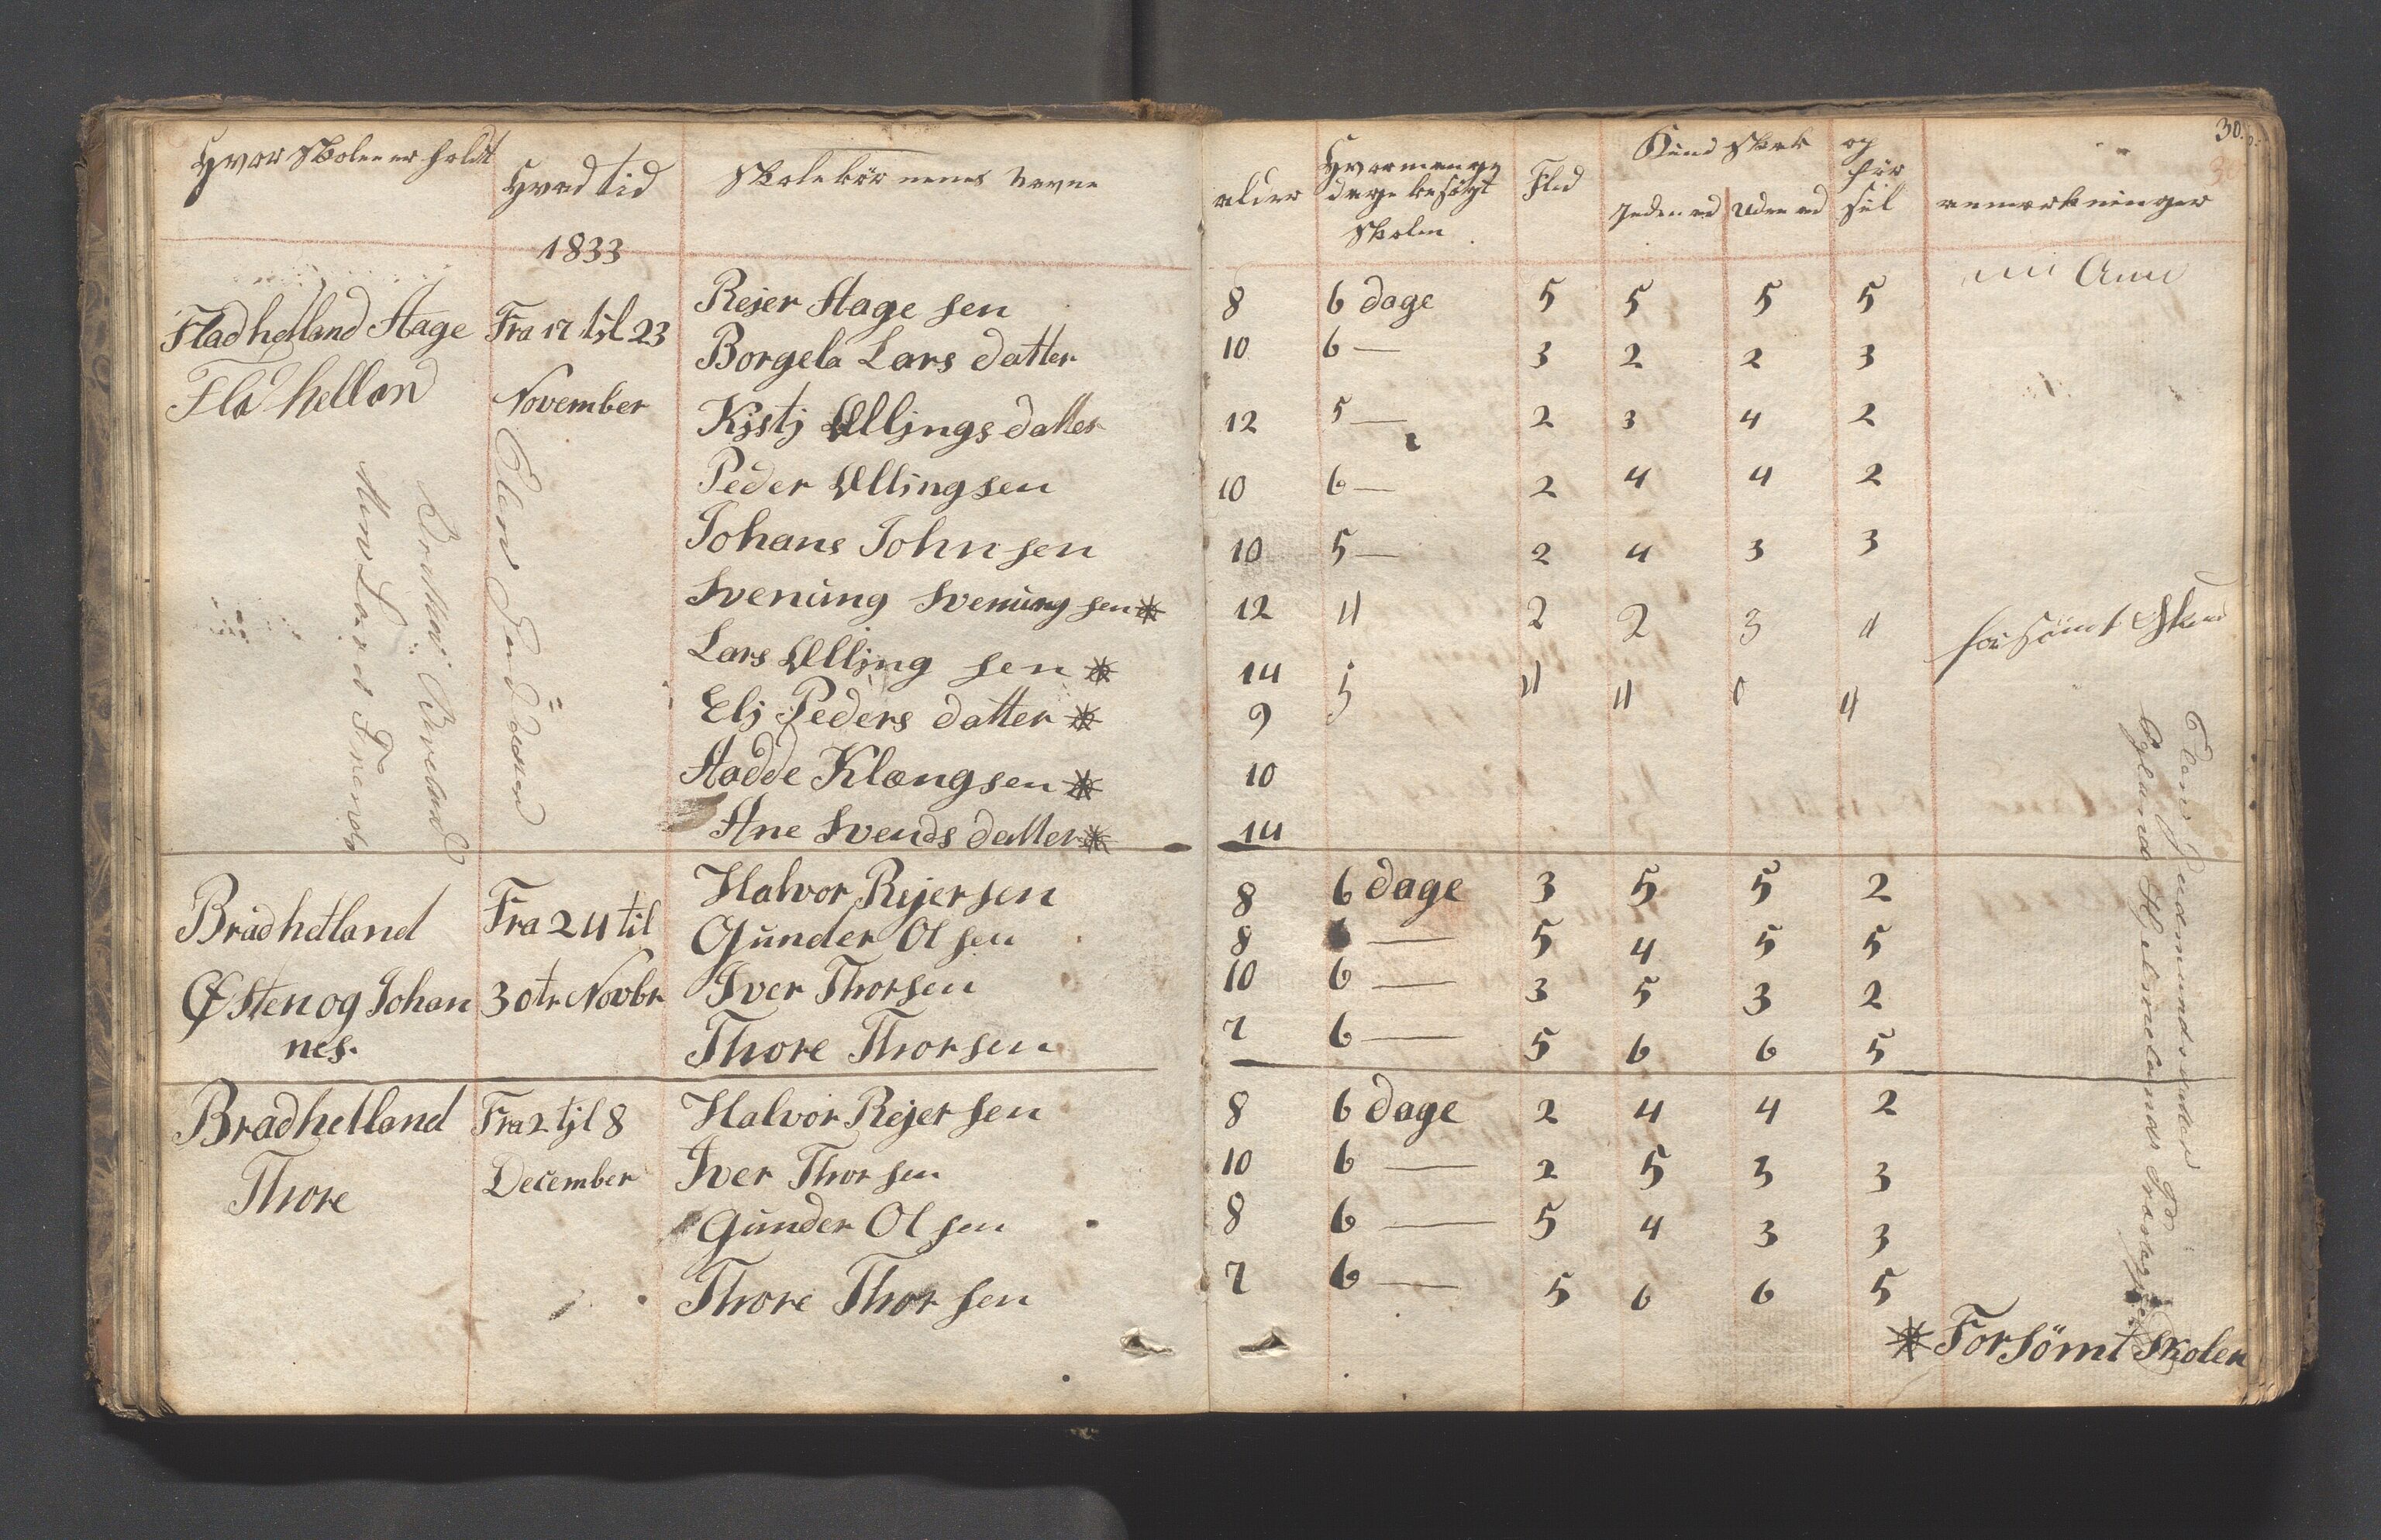 30.
Hvor Skolen er holdt Hvad tid Skolebörnenes Navne alder Hvor mange dage besögt Skolen Flid Kundskab Indenad Udenad og för sel anmerkninger
1833
Fladhetland Aage Fra 17 til 23 Rejer Aage sen 8 6 dage 5 5 5 5
Borgela Lars datter 10 6 — 3 2 2 3
Fladhelland November Kjstj Elljngs datter 12 5 — 2 3 4 2
Peder Ellingsen 10 6 — 2 4 4 2
Johans Johnsen 10 5 — 2 4 3 3
Svenung Svenung sen * 12 4 2 2 3 4 forsömt
Lars Elljng sen * 14 5 4 4 0 4
Elj Peders datter * 9
Aadde Klangsen * 10
Ane Svends datter * 14
Bradhetland Fra 24 til Halvor Rejersen 8 6 dage 3 5 5 2
Gunder Olsen 8 6 — 5 4 5 5
Østen og Johan 30te Novbr Iver Thorsen 10 6 — 3 5 3 2
nes. Thore Thorsen 7 6 — 5 6 6 5
Bradhetland Fra 2 tjl 8 Halvor Rejersen 8 6 dage 2 4 4 2
Thore December Iver Thorsen 10 6 — 2 5 3 3
Gunder Olsen 8 6 — 5 4 3 3
Thore Thorsen 7 6 — 5 6 6 5
* Forsömt Skolen